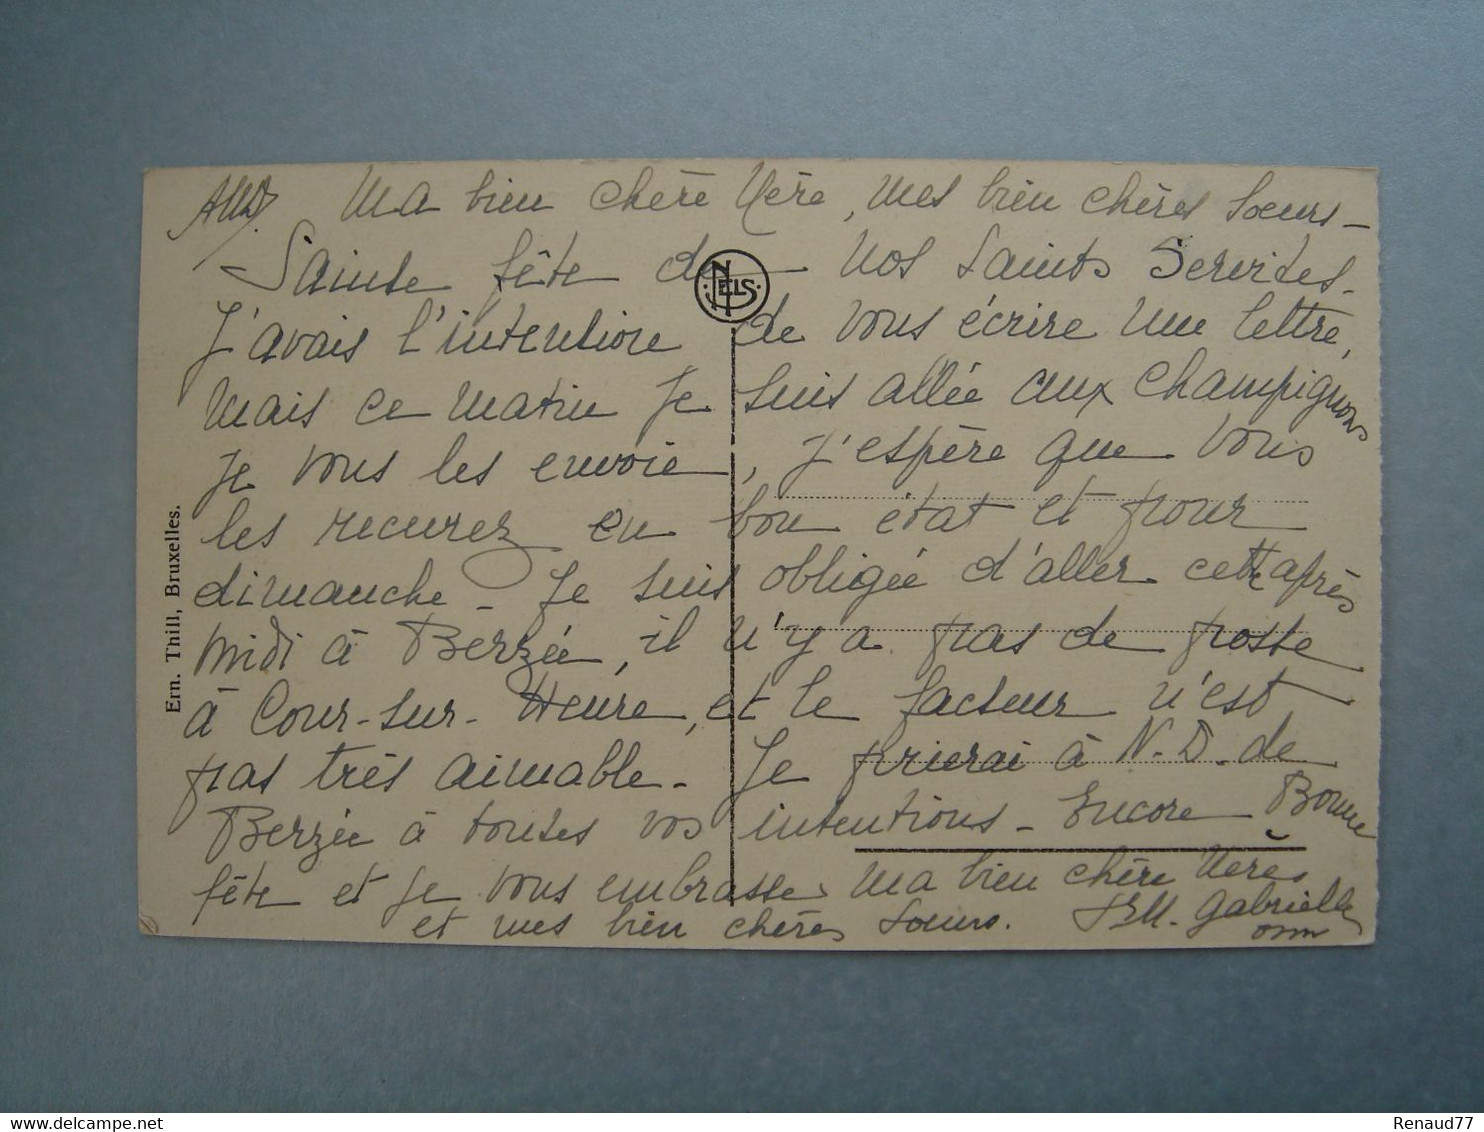 Ma bien chère Mère, mes bien chères Soeurs -
Sainte fête de nos Saints Servites -
J'avais l'intention de vous écrire une lettre,
mais ce matin je suis allée aux champignons
je vous les envoie, j'espère que vous
les recevrez en bon état et pour
dimanche - Je suis obligée d'aller cette après
midi à Berzée, il n'y a pas de poste
à Cour-sur-Heure, et le facteur n'est
pas très aimable - Je prierai à N.D. de
Berzée à toutes vos intentions - Encore Bonne
fête et je vous embrasse ma bien chère Mère
et mes bien chères Soeurs. M. Gabrielle
osm
NELS
Ern. Thill, Bruxelles.
delcampe.net
Renaud77